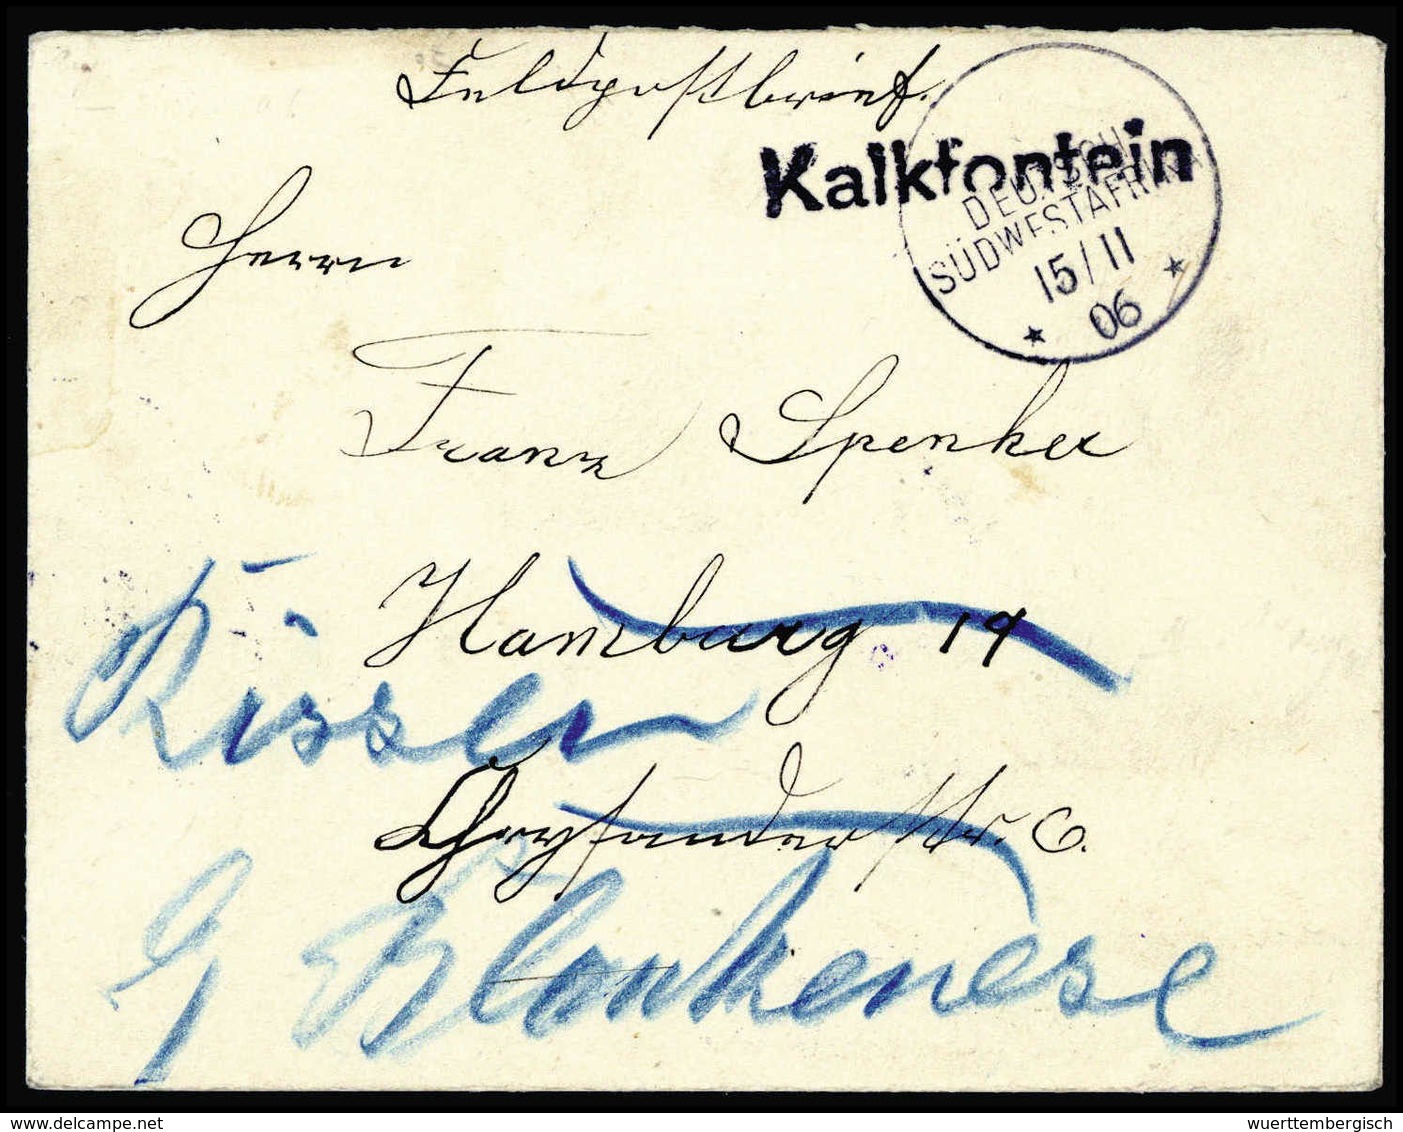 Feldpostbrief.
Kalkfontein
DEUTSCH
SÜDWESTAFRIKA
15/11
* 06 *
Herrn
Franz Spenker
Hamburg 19
Rissen
Chrysanderstr. 6.
b/ Blankenese
delcampe.net
wuerttembergisch